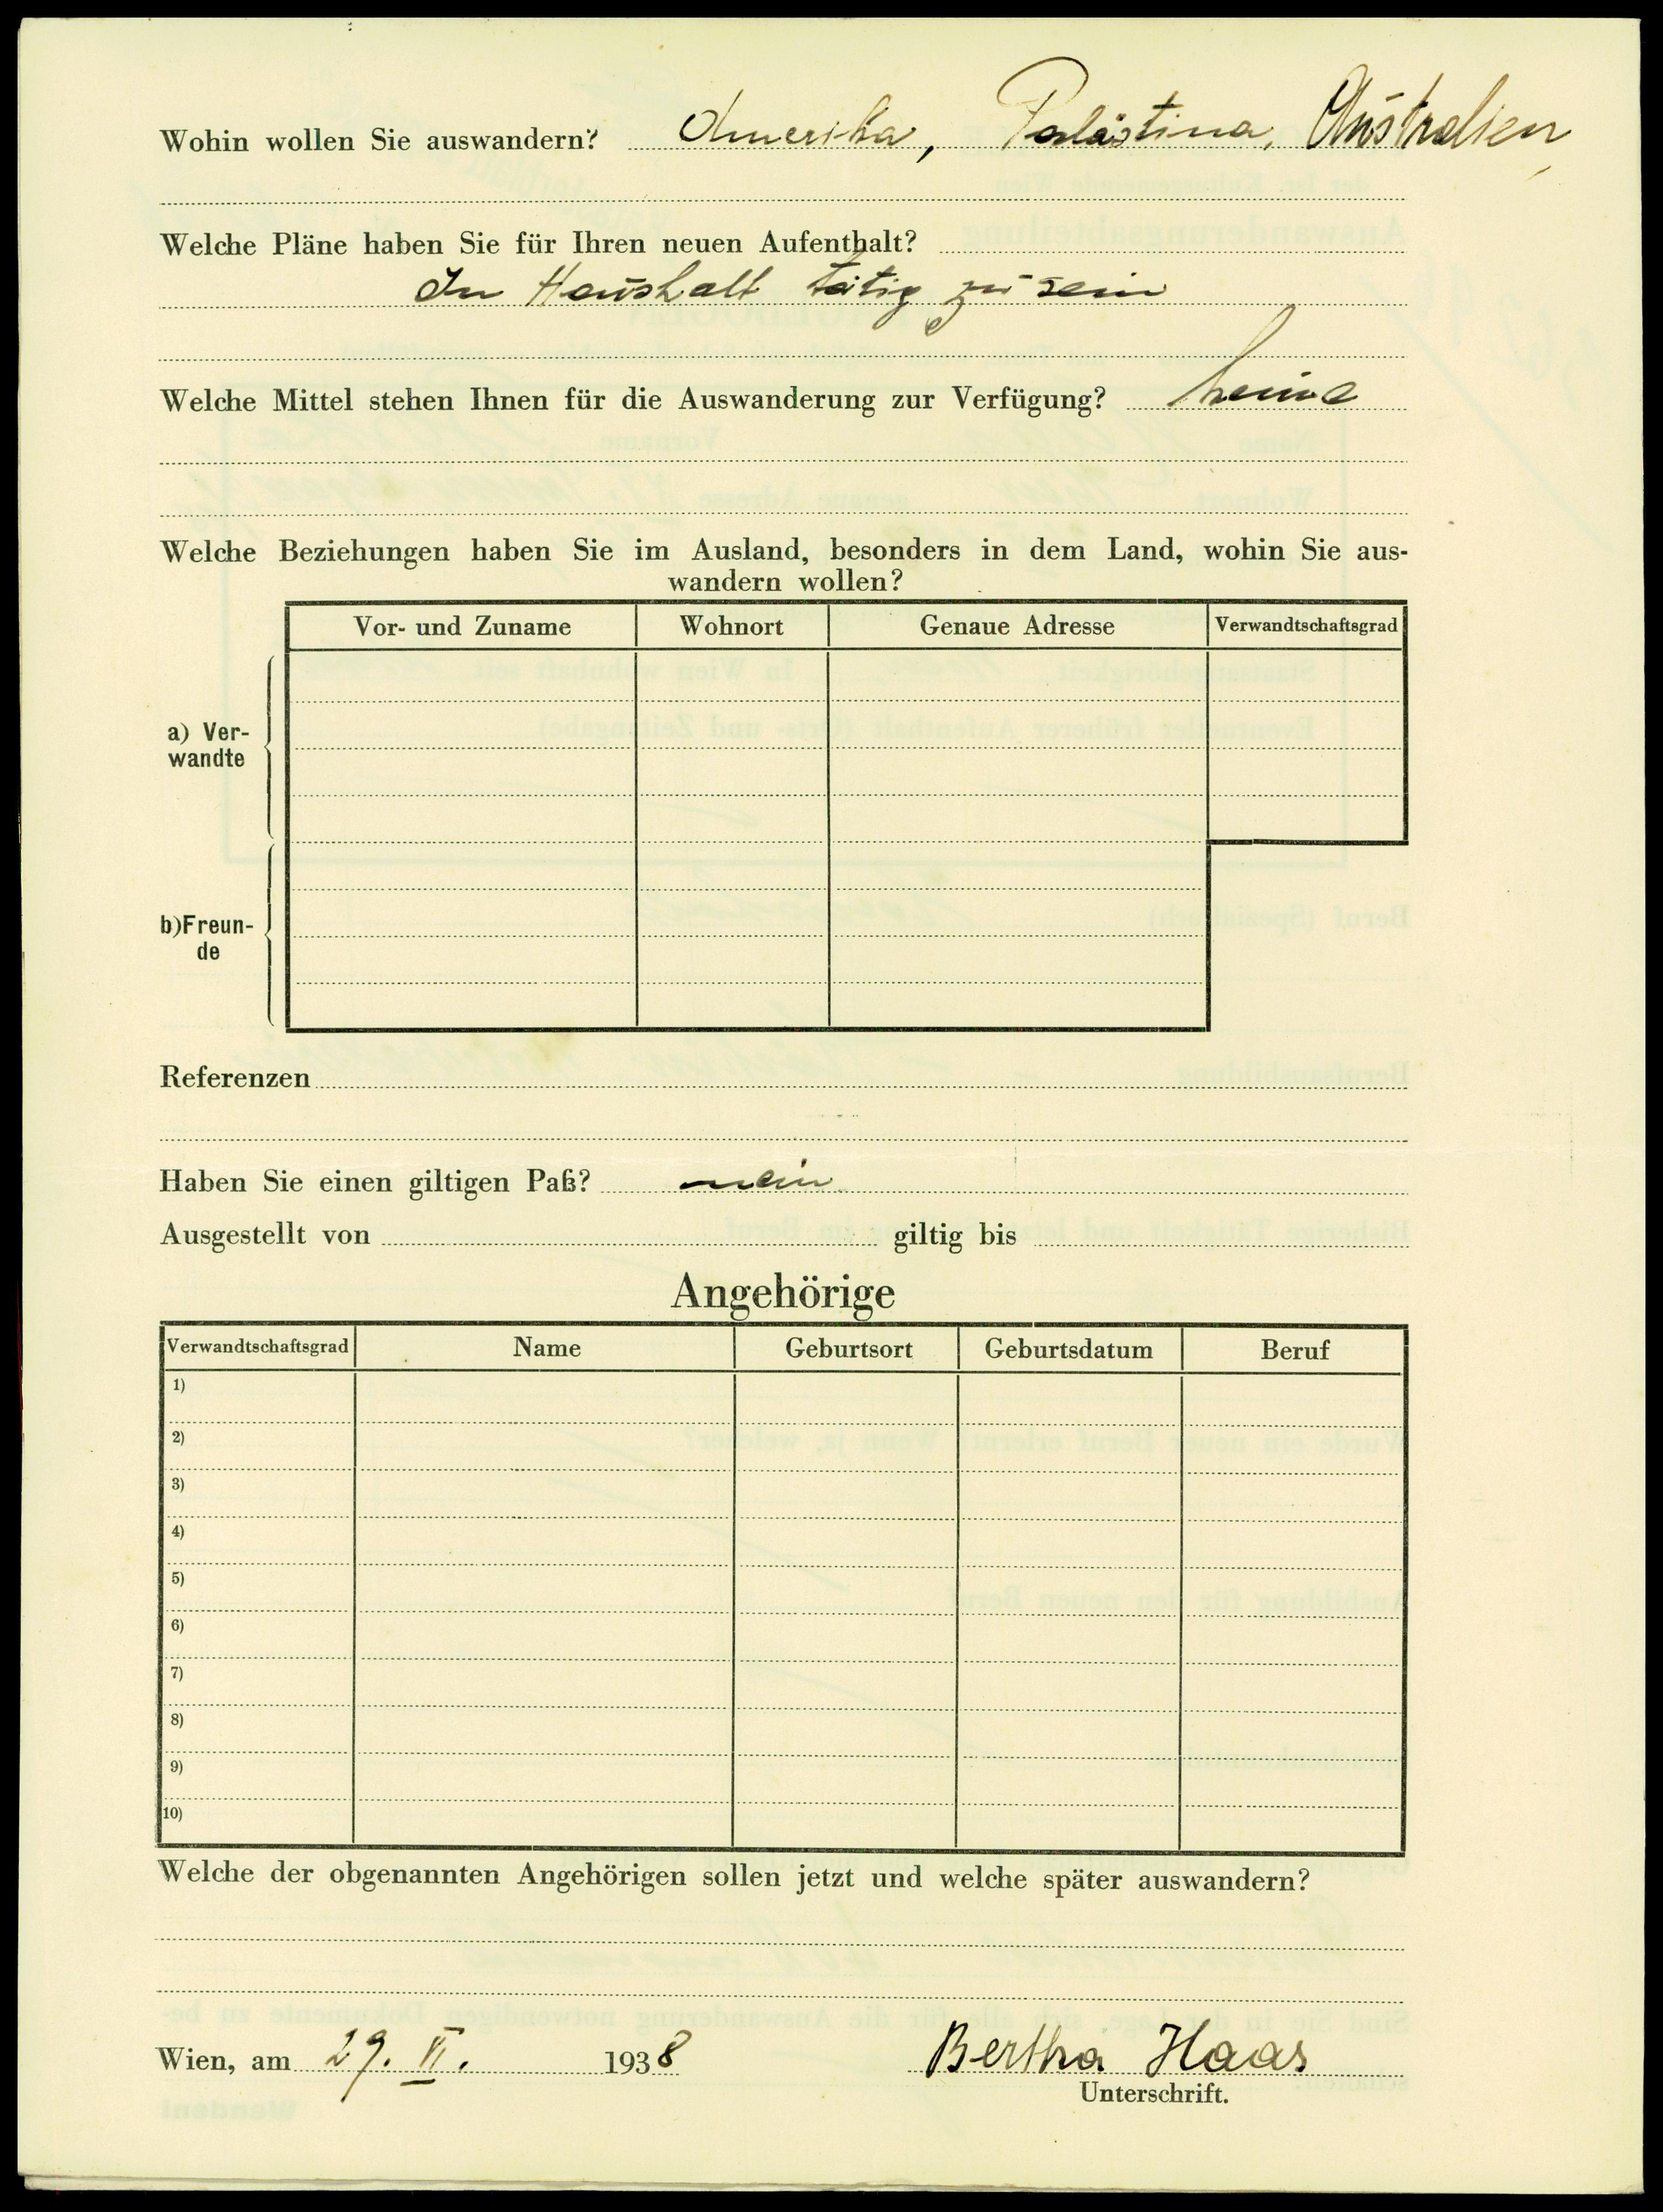 Wohin wollen Sie auswandern? Amerika, Palästina, Australien
Welche Pläne haben Sie für Ihren neuen Aufenthalt?
Im Haushalt tätig zu sein
Welche Mittel stehen Ihnen für die Auswanderung zur Verfügung? keine
Welche Beziehungen haben Sie im Ausland, besonders in dem Land, wohin Sie aus-
wandern wollen?
Vor- und Zuname Wohnort Genaue Adresse Verwandtschaftsgrad
a) Ver-
wandte
b)Freun-
de
Referenzen
Haben Sie einen giltigen Paß? nein
Ausgestellt von giltig bis
Angehörige
Verwandtschaftsgrad Name Geburtsort Geburtsdatum Beruf
1)
2)
3)
4)
5)
6)
7)
8)
9)
10)
Welche der obgenannten Angehörigen sollen jetzt und welche später auswandern?
Wien, am 29. VI. 1938 Bertha Haas
Unterschrift.